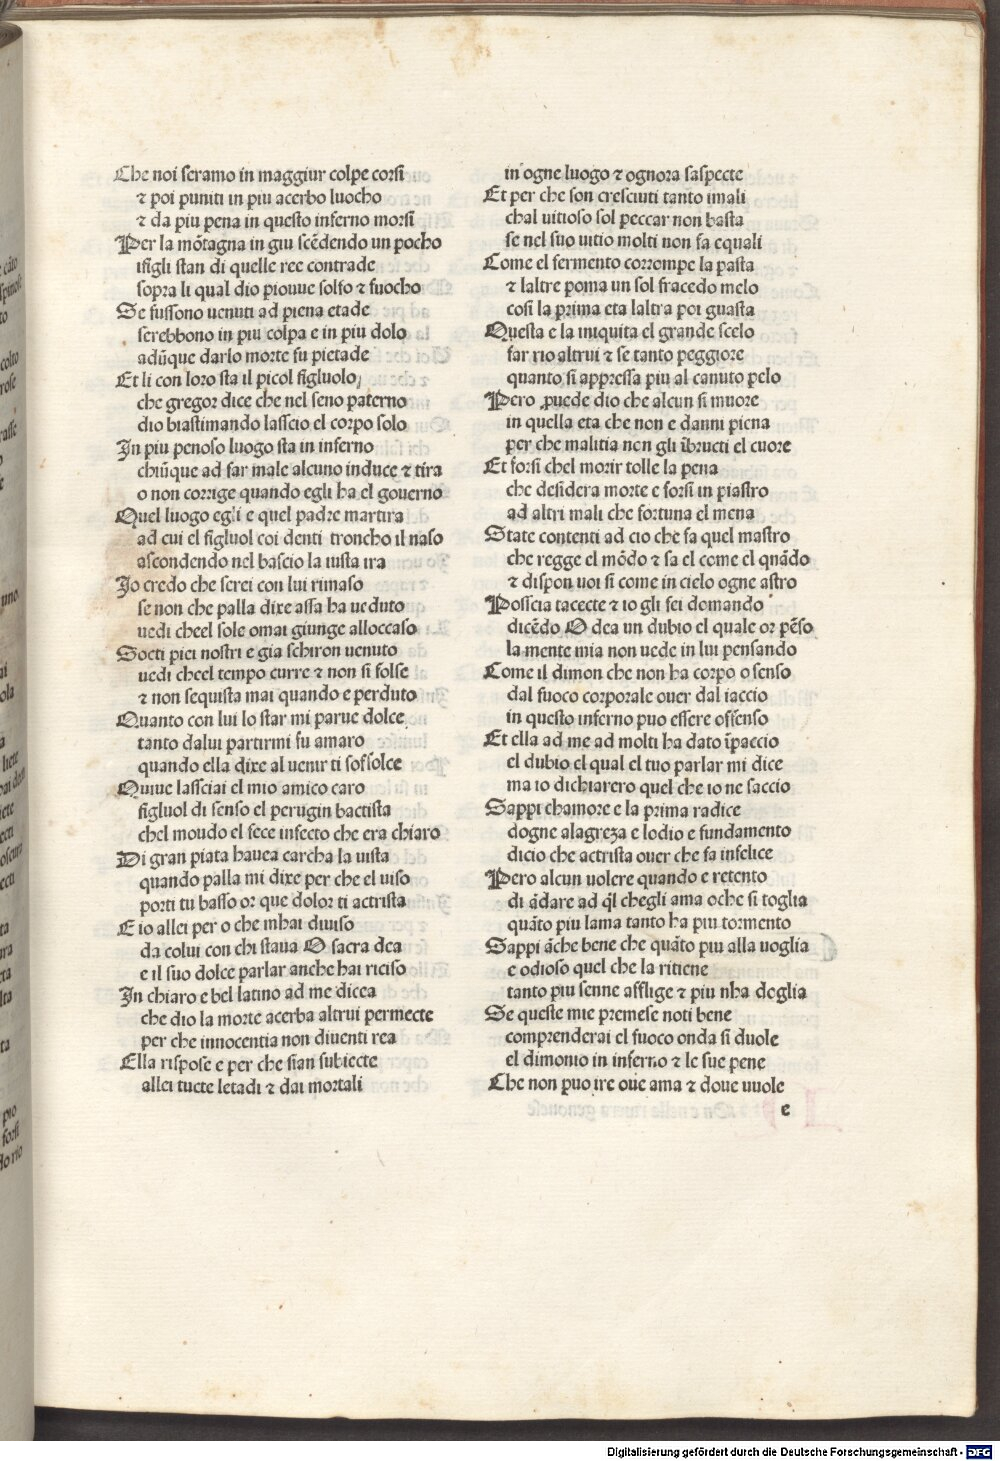 Che noi seramo in maggiur colpe corsi
⁊ poi puniti in piu acerbo luocho
⁊ da piu pena in questo inferno morsi
Per la mōtagna in giu scēdendo un pocho
ifigli stan di quelle ree contrade
sopra li qual dio piouue solfo ⁊ fuocho
Se fussono uenuti ad piena etade
serebbono in piu colpa e in piu dolo
adūque darlo morte fu pietade
Et li con loro sta il picol figluolo
che gregor dice che nel seno paterno
dio biastimando lasscio el corpo solo
In piu penoso luogo sta in inferno
chiūque ad far male alcuno induce ⁊ tira
o non corrige quando egli ha el gouerno
Quel luogo egli e quel padre martira
ad cui el figluol coi denti troncho il naso
ascondendo nel bascio la iusta ira
Io credo che serei con lui rimaso
se non che palla dixe assa ha ueduto
uedi cheel sole omai giunge alloccaso
Socti piei nostri e gia schiron uenuto
uedi cheel tempo curre ⁊ non si folse
⁊ non sequista mai quando e perduto
Quanto con lui lo star mi parue dolce
tanto dalui partirmi fu amaro
quando ella dixe al uenir ti soffolce
Quiue lassciai el mio amico caro
figluol di senso el perugin bactista
chel moudo el fece infecto che era chiaro
Di gran piata hauea carcha la uista
quando palla mi dixe per che el uiso
porti tu basso or que dolor ti actrista
E io allei per o che mhai diuiso
da colui con chi staua O sacra dea
e il suo dolce parlar anche hai riciso
In chiaro e bel latino ad me dicea
che dio la morte acerba altrui permecte
per che innocentia non diuenti rea
Ella rispose e per che sian subiecte
allei tucte letadi ⁊ dai mortali
in ogne luogo ⁊ ognora saspecte
Et per che son cresciuti tanto imali
chal uitioso sol peccar non basta
se nel suo uitio molti non fa equali
Come el fermento corrompe la pasta
⁊ laltre poma un sol fracedo melo
cosi la prima eta laltra poi guasta
Questa e la iniquita el grande scelo
far rio altrui ⁊ se tanto peggiore
quanto si appressa piu al canuto pelo
Pero ꝓuede dio che alcun si muore
in quella eta che non e danni piena
per che malitia non gli ībructi el cuore
Et forsi chel morir tolle la pena
che desidera morte e forsi in piastro
ad altri mali che fortuna el mena
State contenti ad cio che fa quel mastro
che regge el mōdo ⁊ sa el come el quādo
⁊ dispon uoi si come in cielo ogne astro
Posscia tacecte ⁊ io gli fei domando
dicēdo O dea un dubio el quale or pēso
la mente mia non uede in lui pensando
Come il dimon che non ha corpo o senso
dal fuoco corporale ouer dal iaccio
in questo inferno puo essere offenso
Et ella ad me ad molti ha dato īpaccio
el dubio el qual el tuo parlar mi dice
ma io dichiarero quel che io ne saccio
Sappi chamore e la prima radice
dogne alagreza e lodio e fundamento
dicio che actrista ouer che fa infelice
Pero alcun uolere quando e retento
di ādare ad ql̄ chegli ama oche si toglia
quāto piu lama tanto ha piu tormento
Sappi āche bene che quāto piu alla uoglia
e odioso quel che la ritiene
tanto piu senne afflige ⁊ piu nha doglia
Se queste mie premese noti bene
comprenderai el fuoco onda si duole
el dimonio in inferno ⁊ le sue pene
Che non puo ire oue ama ⁊ doue uuole
e
Digitalisierung gefördert durch die Deutsche Forschungsgemeinschaft - DFG